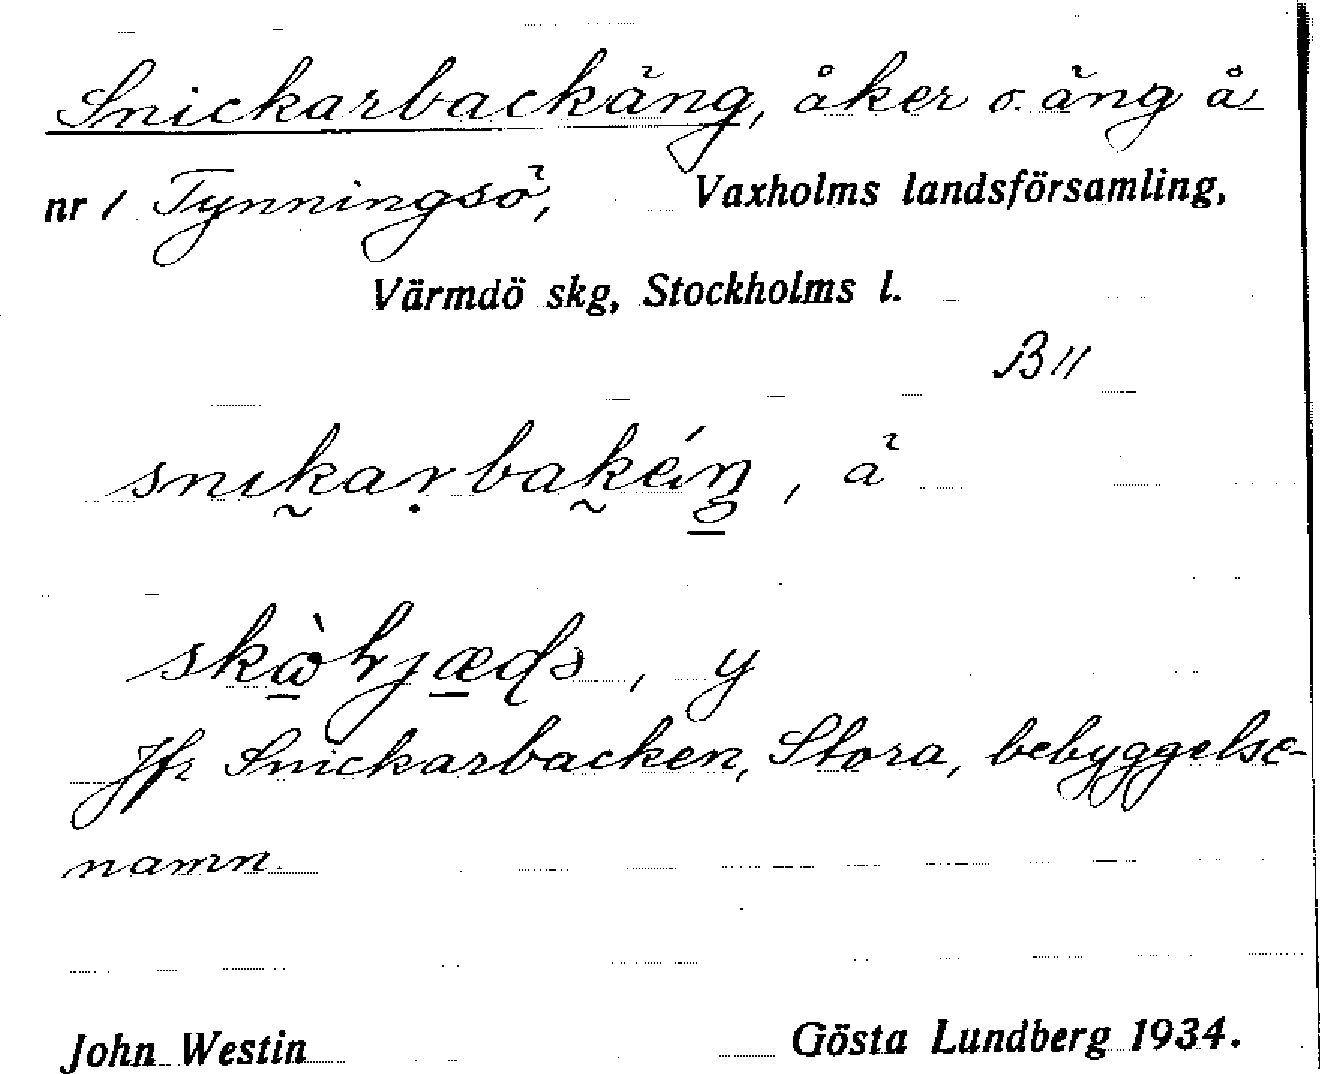 Snickarbackäng, åker o. äng å
nr 1 Tynningsö, Vaxholms landsförsamling,
Värmdö skg, Stockholms l.
B 11
snıkarbakéŋ, ä
y
Jfr Snickarbacken, Stora, bebyggelse-
namn
John Westin Gösta Lundberg 1934.